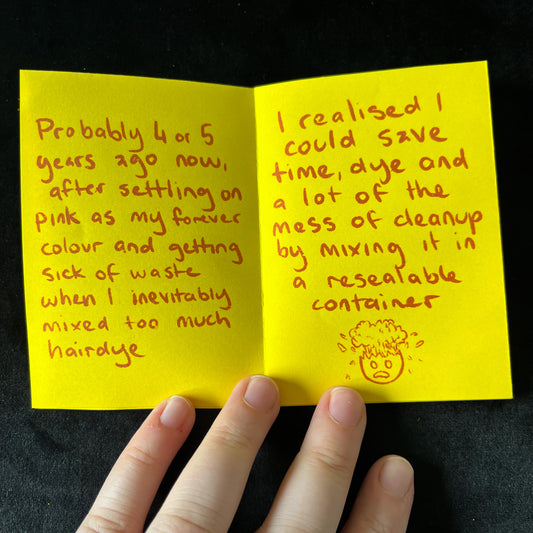 Probably 4 or 5
years ago now,
after settling on
pink as my forever
colour and getting
sick of waste
when I inevitably
mixed too much
hairdye
I realised I
could save
time, dye and
a lot of the
mess of cleanup
by mixing it in
a resealable
container